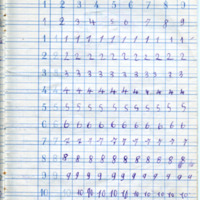 1 2 3 4 5 6 7 8 9
1 2 3 4 5 6 7 8 9
1 1 1 1 1 1 1 1 1 1 1 1
2 2 2 2 2 2 2 2 2 2 2 2
3 3 3 3 3 3 3 3 3 3 3
4 4 4 4 4 4 4 4 4 4 4 4
5 5 5 5 5 5 5 5 5 5
6 6 6 6 6 6 6 6 6 6 6 6
7 7 7 7 7 7 7 7 7 7 7 7
8 8 8 8 8 8 8 8 8 8 8 8
9 9 9 9 9 9 9 9 9 9 9 9
10 10 10 10 10 10 10 10 10 10